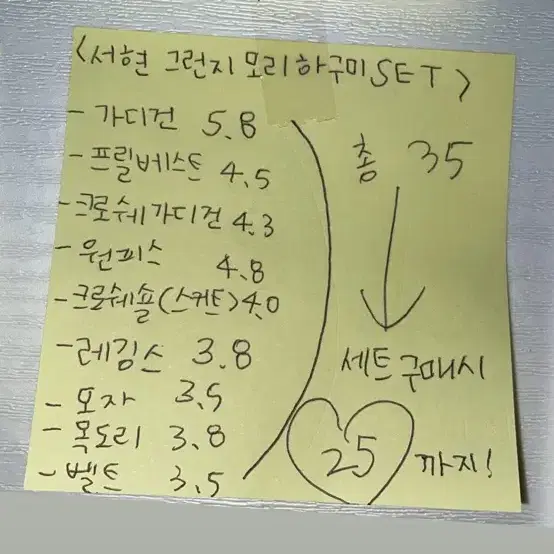 <서현 그런지 모리하구미SET>
- 가디건 5.8
- 프릴베스트 4.5
- 크로쉐가디건 4.3
- 원피스 4.8
- 크로쉐숄(스커트) 4.0
- 레깅스 3.8
- 모자 3.5
- 목도리 3.8
- 벨트 3.5
총 35
세트 구매시
25 까지!